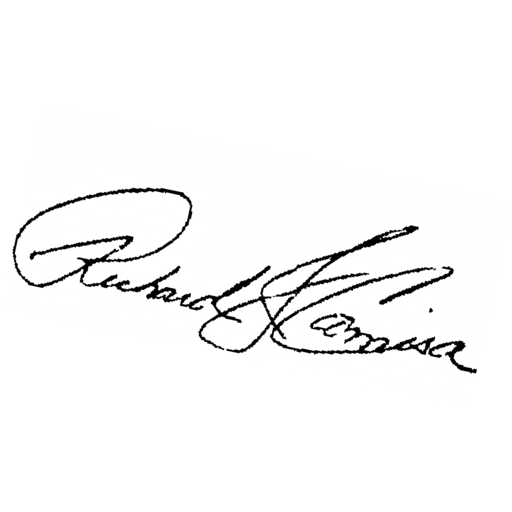 Richard J Camisa